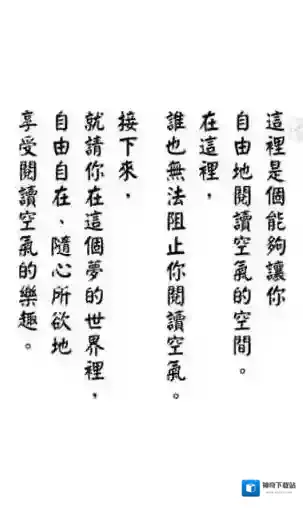 這裡是個能夠讓你
自由地閱讀空氣的空間。
在這裡，
誰也無法阻止你閱讀空氣。
接下來，
就請你在這個夢的世界裡，
自由自在、隨心所欲地
享受閱讀空氣的樂趣。
神奇下载站